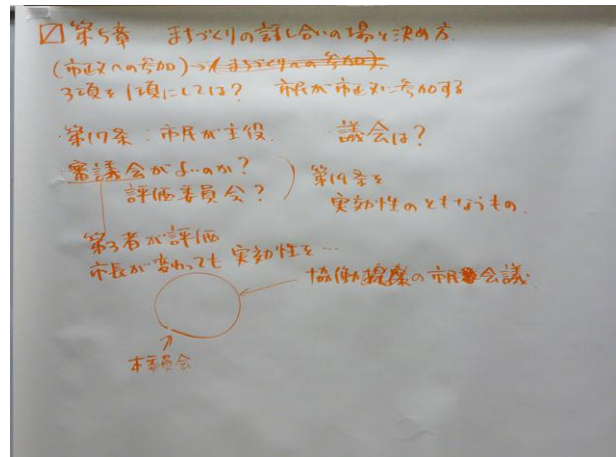 ☑ 第5章 まちづくりの話し合いの場と決め方
(市政への参加)→(まちづくりへの参加)
3項を1項にしては? 市民が市政に参加する
・第17条:市民が主役 議会は?
審議会がよいのか?
評価委員会? ) 第19条を
実効性のともなうもの
第3者が評価
市長が変わっても 実効性を…
協働推進の市民会議
本委員会